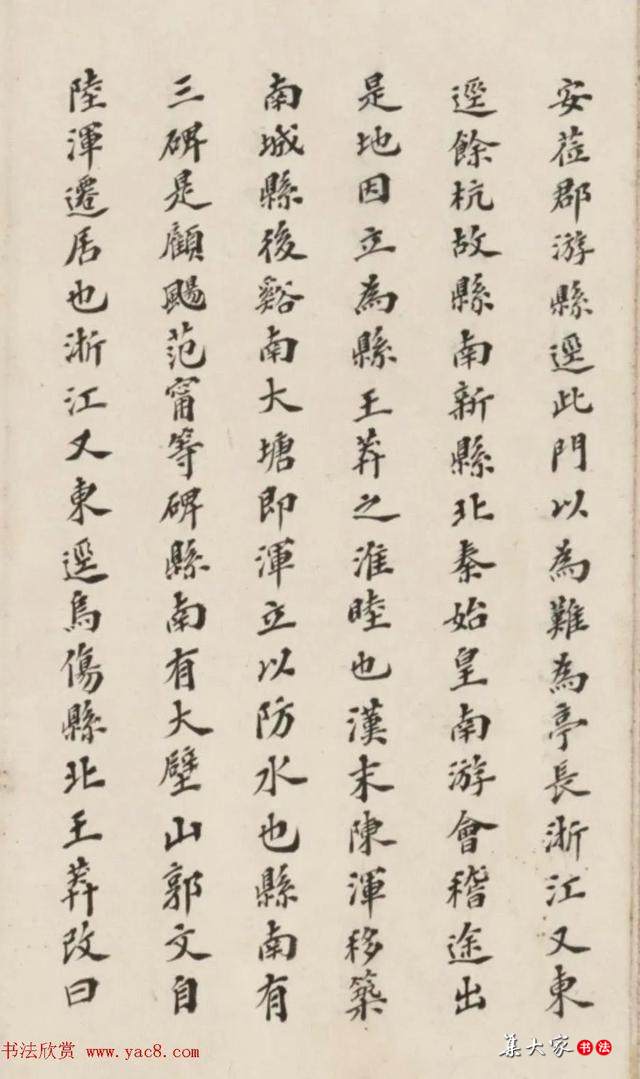 安莅郡游縣逕此門以為難為亭長浙江又東
逕餘杭故縣南新縣北秦始皇南游會稽途出
是地因立為縣王莽之淮睦也漢末陳渾移築
南城縣後谿南大塘即渾立以防水也縣南有
三碑是顧颺范甯等碑縣南有大壁山郭文自
陸渾遷居也浙江又東逕烏傷縣北王莽改曰
书法欣赏 www.yac8.com
集大家 书法